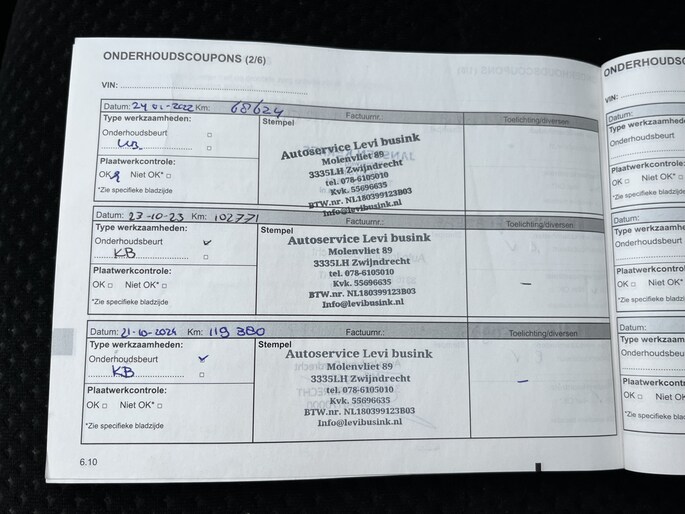 ONDERHOUDSCOUPONS (2/6)
VIN:
Datum: 24-01-2022 Km: 68624 Factuurnr.: Toelichting/diversen
Type werkzaamheden: Stempel
Onderhoudsbeurt
Autoservice Levi busink
Molenvliet 89
3335LH Zwijndrecht
tel. 078-6105010
Kvk. 55696635
BTW.nr. NL180399123B03
Info@levibusink.nl
Plaatwerkcontrole:
OK Niet OK*
*Zie specifieke bladzijde
Datum: 23-10-23 Km: 102771 Factuurnr.: Toelichting/diversen
Type werkzaamheden: Stempel
Onderhoudsbeurt
KB
Autoservice Levi busink
Molenvliet 89
3335LH Zwijndrecht
tel. 078-6105010
Kvk. 55696635
BTW.nr. NL180399123B03
Info@levibusink.nl
Plaatwerkcontrole:
OK Niet OK*
*Zie specifieke bladzijde
Datum: 21-10-2024 Km: 119 380 Factuurnr.: Toelichting/diversen
Type werkzaamheden: Stempel
Onderhoudsbeurt
KB
Autoservice Levi busink
Molenvliet 89
3335LH Zwijndrecht
tel. 078-6105010
Kvk. 55696635
BTW.nr. NL180399123B03
Info@levibusink.nl
Plaatwerkcontrole:
OK Niet OK*
*Zie specifieke bladzijde
6.10
VIN:
Datum:
Onderhoudsbeurt
Plaatwerkcontrole:
OK Niet OK*
*Zie specifieke bladzijde
Datum:
Onderhoudsbeurt
Plaatwerkcontrole:
OK Niet OK*
*Zie specifieke bladzijde
Datum:
Onderhoudsbeurt
OK Niet OK*